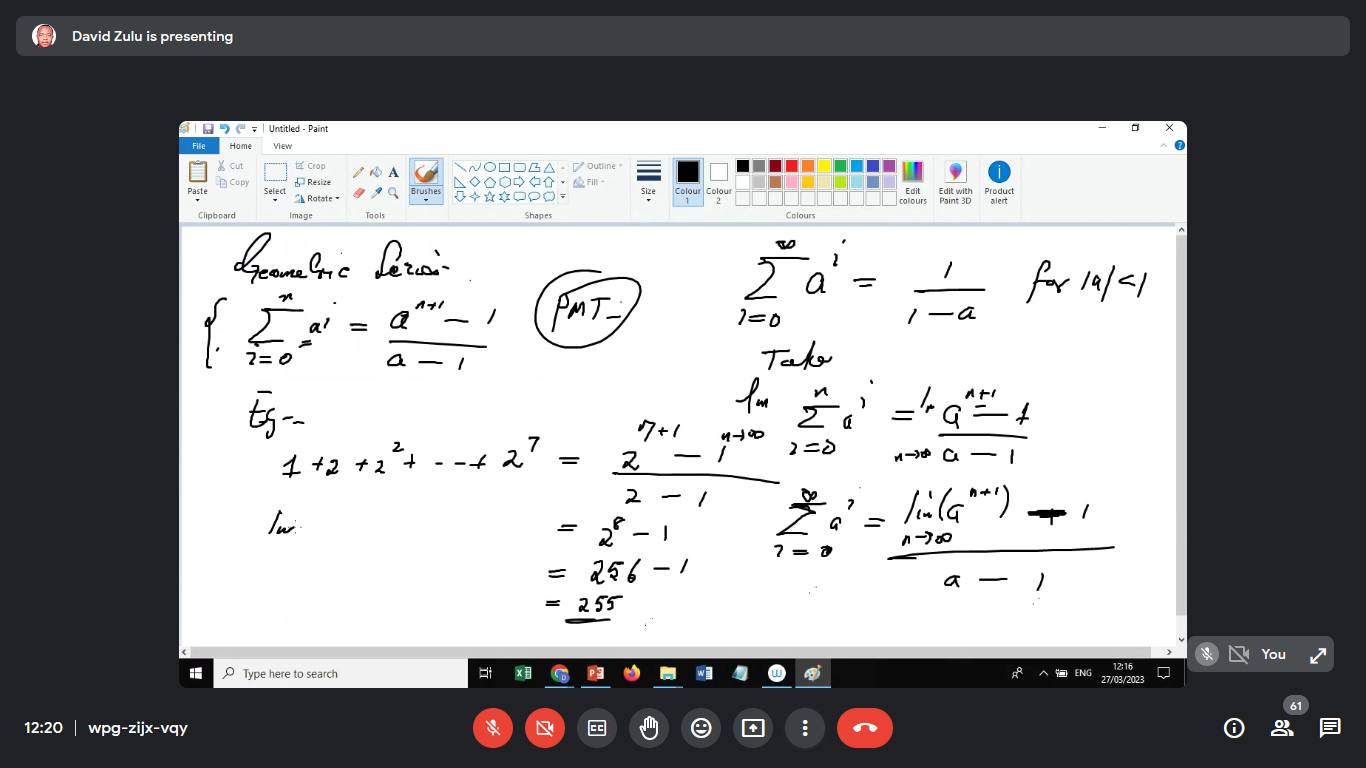 David Zulu is presenting
Untitled - Paint
File Home View
Paste
Cut
Copy
Clipboard
Select
Crop
Resize
Rotate
Image
A
Tools
Brushes
Outline
Fill
Shapes
Size
Colour 1
Colour 2
Edit colours
Edit with Paint 3D
Product alert
Colours
Geometric Series
n
∑ aⁱ = aⁿ⁺¹ − 1
i=0 a − 1
PMT
Eg
1 + 2 + 2² + --- + 2⁷ = 2⁷⁺¹ − 1
2 − 1
= 2⁸ − 1
= 256 − 1
= 255
∞
∑ aⁱ = 1 for |a|<1
i=0 1 − a
Take
lim n
n→∞ ∑ aⁱ = lim aⁿ⁺¹ − 1
i=0 n→∞ a − 1
∞
∑ aⁱ = lim (aⁿ⁺¹) − 1
i=0 n→∞
a − 1
You
Type here to search
ENG
12:16
27/03/2023
12:20 | wpg-zijx-vqy
CC
61